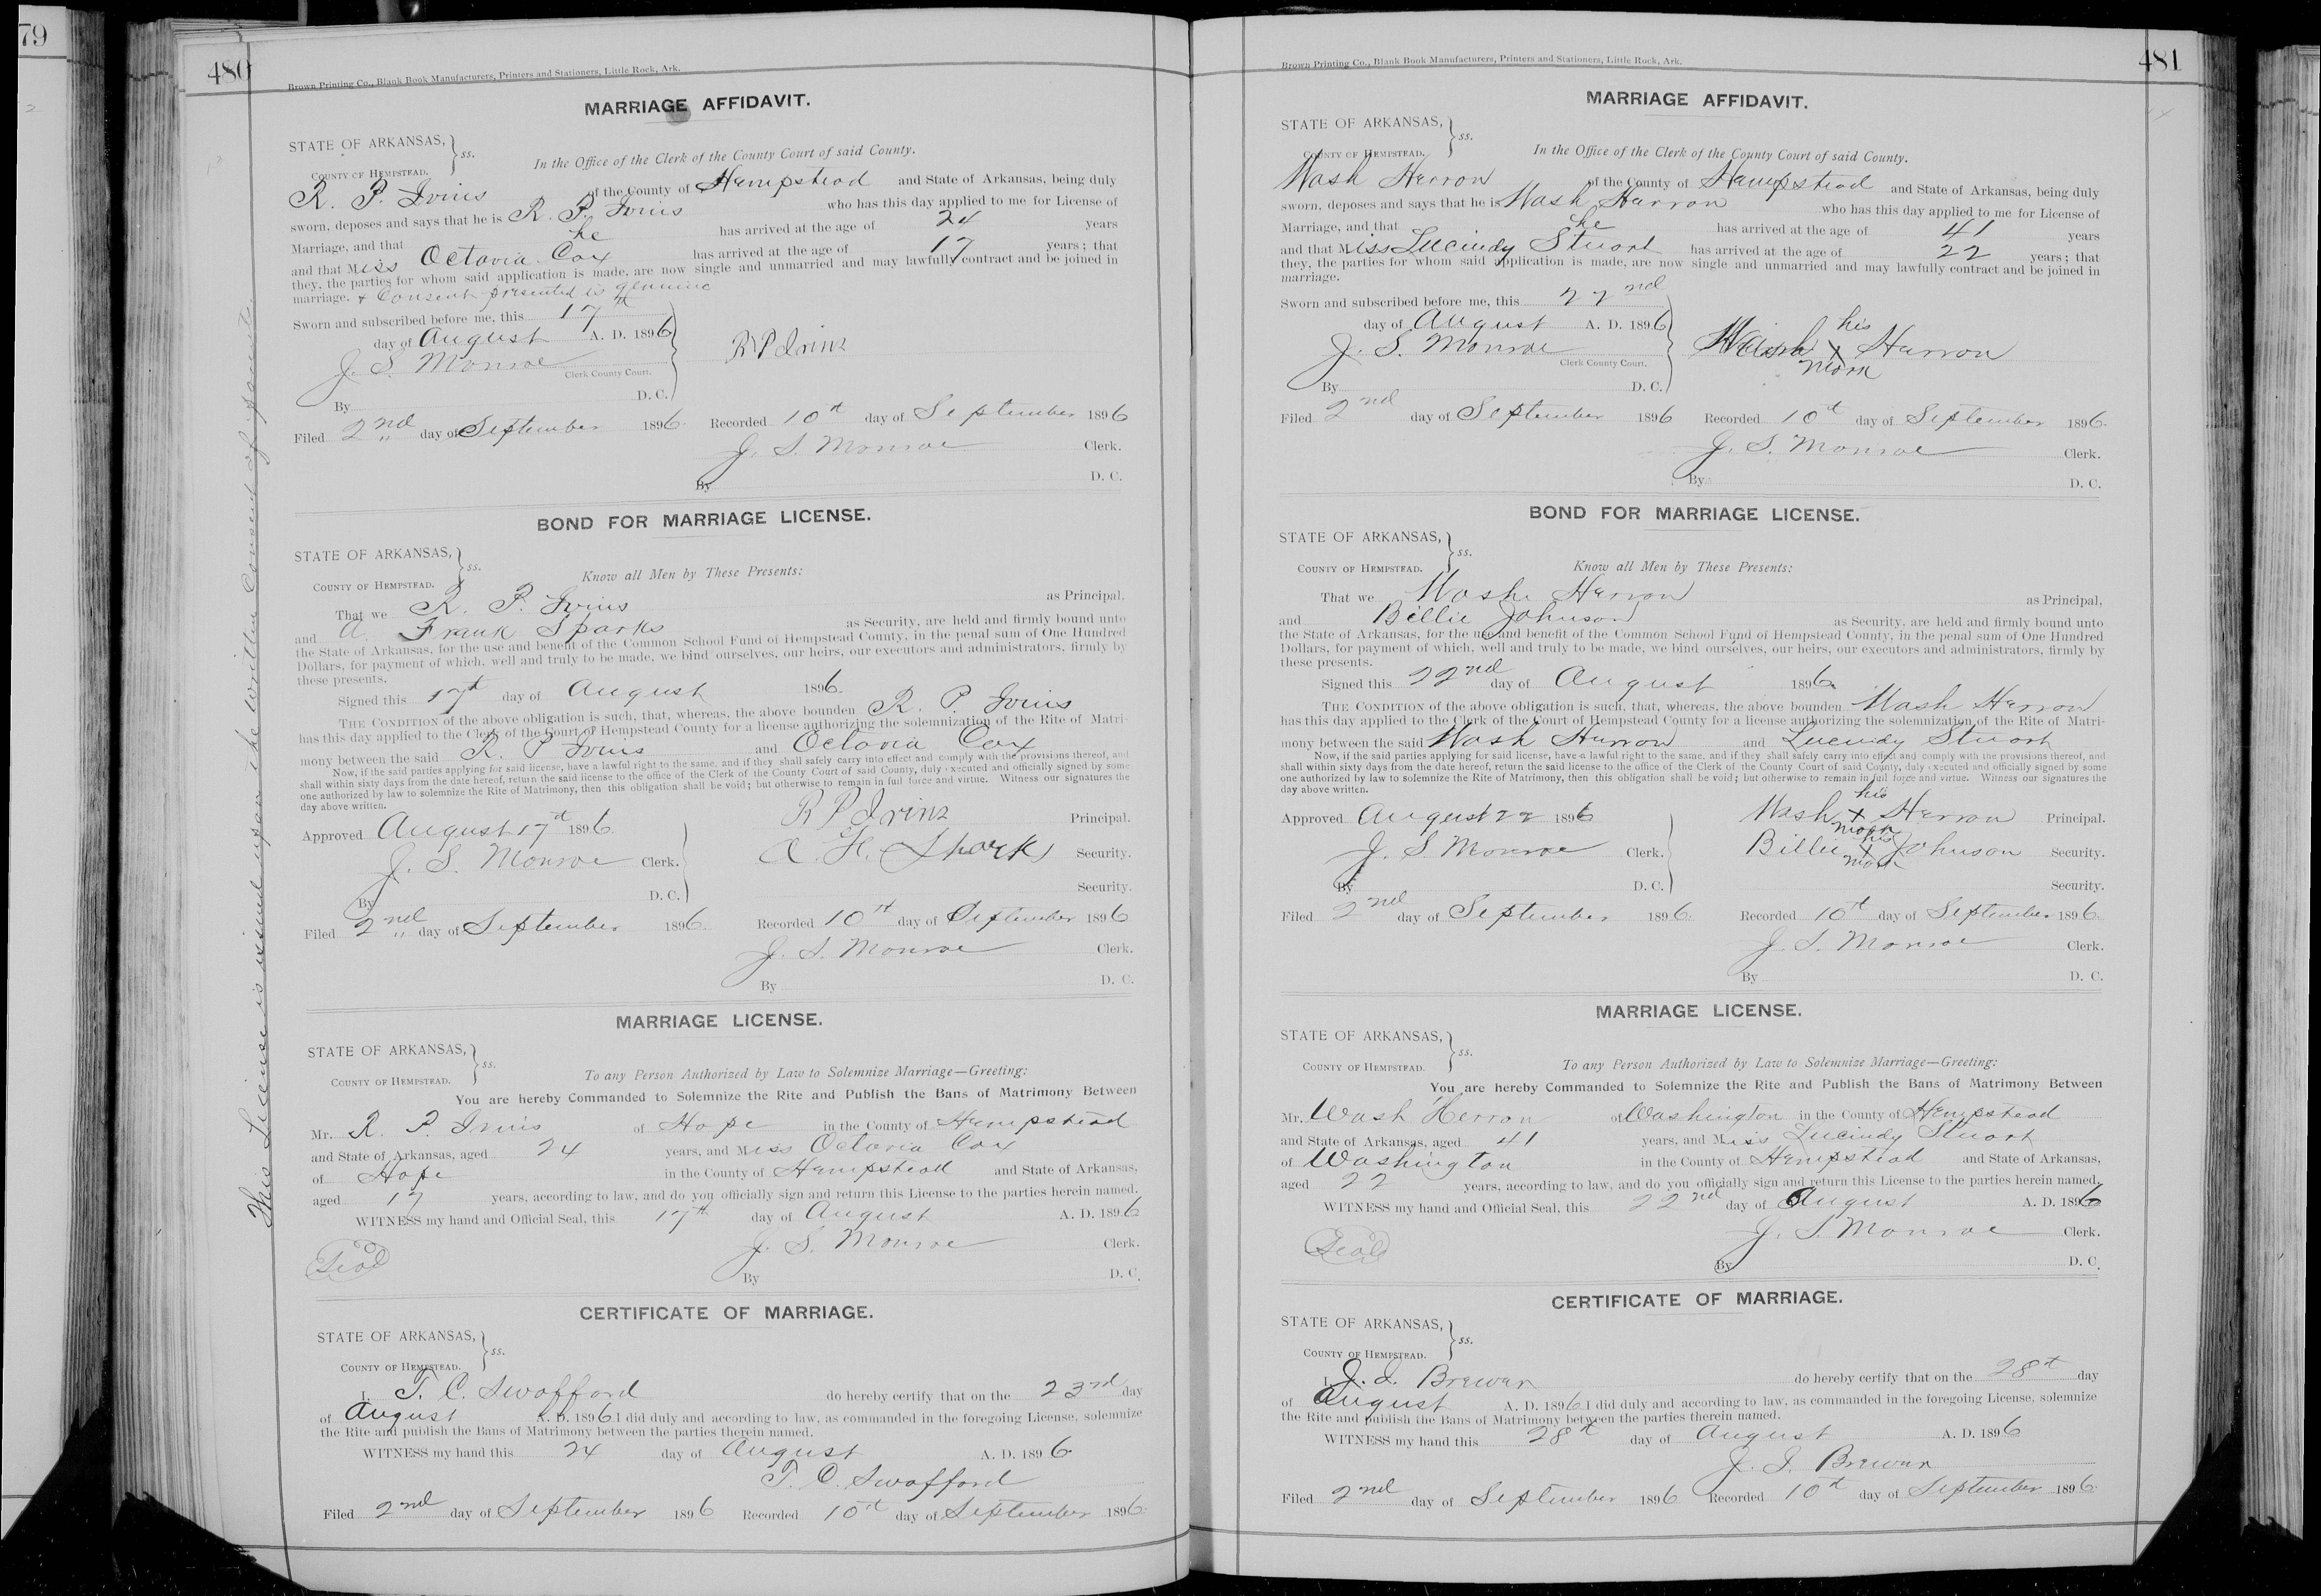 79
480
Brown Printing Co., Blank Book Manufacturers, Printers and Stationers, Little Rock, Ark.
MARRIAGE AFFIDAVIT.
STATE OF ARKANSAS, } ss.
COUNTY OF HEMPSTEAD.
In the Office of the Clerk of the County Court of said County.
R. P. Ivins of the County of Hempstead and State of Arkansas, being duly
sworn, deposes and says that he is R. P. Ivins who has this day applied to me for License of
Marriage, and that he has arrived at the age of 24 years
and that Miss Octavia Cox has arrived at the age of 17 years; that
they, the parties for whom said application is made, are now single and unmarried and may lawfully contract and be joined in
marriage. & Consent presented is genuine
Sworn and subscribed before me, this 17th
day of August A. D. 1896
J. S. Monroe
Clerk County Court.
R P Ivins
By D. C.
Filed 2nd day of September 1896. Recorded 10th day of September 1896
J. S. Monroe Clerk.
By D. C.
BOND FOR MARRIAGE LICENSE.
STATE OF ARKANSAS, } ss.
COUNTY OF HEMPSTEAD.
Know all Men by These Presents:
That we R. P. Ivins as Principal,
and A. Frank Sparks as Security, are held and firmly bound unto
the State of Arkansas, for the use and benefit of the Common School Fund of Hempstead County, in the penal sum of One Hundred
Dollars, for payment of which, well and truly to be made, we bind ourselves, our heirs, our executors and administrators, firmly by
these presents.
Signed this 17th day of August 1896.
THE CONDITION of the above obligation is such, that, whereas, the above bounden R. P. Ivins
has this day applied to the Clerk of the Court of Hempstead County for a license authorizing the solemnization of the Rite of Matri-
mony between the said R. P Ivins and Octavia Cox
Now, if the said parties applying for said license, have a lawful right to the same, and if they shall safely carry into effect and comply with the provisions thereof, and
shall within sixty days from the date hereof, return the said license to the office of the Clerk of the County Court of said County, duly executed and officially signed by some
one authorized by law to solemnize the Rite of Matrimony, then this obligation shall be void; but otherwise to remain in full force and virtue. Witness our signatures the
day above written.
Approved August 17th 1896. R P Ivins Principal.
J. S. Monroe Clerk. A. F. Sparks Security.
By D. C. Security.
Filed 2nd day of September 1896. Recorded 10th day of September 1896
J. S. Monroe Clerk.
By D. C.
MARRIAGE LICENSE.
STATE OF ARKANSAS, } ss.
COUNTY OF HEMPSTEAD.
To any Person Authorized by Law to Solemnize Marriage—Greeting:
You are hereby Commanded to Solemnize the Rite and Publish the Bans of Matrimony Between
Mr. R. P. Ivins of Hope in the County of Hempstead
and State of Arkansas, aged 24 years, and Miss Octavia Cox
of Hope in the County of Hempstead and State of Arkansas,
aged 17 years, according to law, and do you officially sign and return this License to the parties herein named.
WITNESS my hand and Official Seal, this 17th day of August A. D. 1896
J. S. Monroe Clerk.
Seal
By D. C.
CERTIFICATE OF MARRIAGE.
STATE OF ARKANSAS, } ss.
COUNTY OF HEMPSTEAD.
I, T. C. Swofford do hereby certify that on the 23rd day
of August A. D. 1896 I did duly and according to law, as commanded in the foregoing License, solemnize
the Rite and publish the Bans of Matrimony between the parties therein named.
WITNESS my hand this 24 day of August A. D. 1896.
T. C. Swofford
Filed 2nd day of September 1896 Recorded 10th day of September 1896.
This License is issued upon the written Consent of parents.
481
Brown Printing Co., Blank Book Manufacturers, Printers and Stationers, Little Rock, Ark.
MARRIAGE AFFIDAVIT.
STATE OF ARKANSAS, } ss.
COUNTY OF HEMPSTEAD.
In the Office of the Clerk of the County Court of said County.
Wash Herron of the County of Hempstead and State of Arkansas, being duly
sworn, deposes and says that he is Wash Herron who has this day applied to me for License of
Marriage, and that he has arrived at the age of 41 years
and that Miss Lucindy Stuart has arrived at the age of 22 years; that
they, the parties for whom said application is made, are now single and unmarried and may lawfully contract and be joined in
marriage.
Sworn and subscribed before me, this 22nd
day of August A. D. 1896
J. S. Monroe
Clerk County Court.
his
Wash x Herron
mark
By D. C.
Filed 2nd day of September 1896 Recorded 10th day of September 1896.
J. S. Monroe Clerk.
By D. C.
BOND FOR MARRIAGE LICENSE.
STATE OF ARKANSAS, } ss.
COUNTY OF HEMPSTEAD.
Know all Men by These Presents:
That we Wash Herron as Principal,
and Billie Johnson as Security, are held and firmly bound unto
the State of Arkansas, for the use and benefit of the Common School Fund of Hempstead County, in the penal sum of One Hundred
Dollars, for payment of which, well and truly to be made, we bind ourselves, our heirs, our executors and administrators, firmly by
these presents.
Signed this 22nd day of August 1896.
THE CONDITION of the above obligation is such, that, whereas, the above bounden Wash Herron
has this day applied to the Clerk of the Court of Hempstead County for a license authorizing the solemnization of the Rite of Matri-
mony between the said Wash Herron and Lucindy Stuart
Now, if the said parties applying for said license, have a lawful right to the same, and if they shall safely carry into effect and comply with the provisions thereof, and
shall within sixty days from the date hereof, return the said license to the office of the Clerk of the County Court of said County, duly executed and officially signed by some
one authorized by law to solemnize the Rite of Matrimony, then this obligation shall be void; but otherwise to remain in full force and virtue. Witness our signatures the
day above written.
his
Approved August 22 1896 Wash x Herron Principal.
mark his
J. S. Monroe Clerk. Billie x Johnson Security.
mark
By D. C. Security.
Filed 2nd day of September 1896. Recorded 10th day of September 1896.
J. S. Monroe Clerk.
By D. C.
MARRIAGE LICENSE.
STATE OF ARKANSAS, } ss.
COUNTY OF HEMPSTEAD.
To any Person Authorized by Law to Solemnize Marriage—Greeting:
You are hereby Commanded to Solemnize the Rite and Publish the Bans of Matrimony Between
Mr. Wash Herron of Washington in the County of Hempstead
and State of Arkansas, aged 41 years, and Miss Lucindy Stuart
of Washington in the County of Hempstead and State of Arkansas,
aged 22 years, according to law, and do you officially sign and return this License to the parties herein named,
WITNESS my hand and Official Seal, this 22nd day of August A. D. 1896
J. S. Monroe Clerk.
Seal
By D. C.
CERTIFICATE OF MARRIAGE.
STATE OF ARKANSAS, } ss.
COUNTY OF HEMPSTEAD.
I, J. I. Brewer do hereby certify that on the 28th day
of August A. D. 1896 I did duly and according to law, as commanded in the foregoing License, solemnize
the Rite and publish the Bans of Matrimony between the parties therein named.
WITNESS my hand this 28th day of August A. D. 1896
J. I. Brewer
Filed 2nd day of September 1896 Recorded 10th day of September 1896.